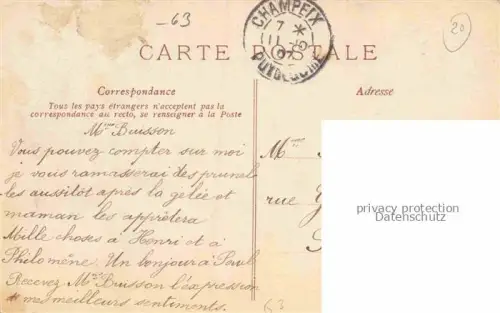 -63
20
CHAMPEIX
7 *
PUY-DE-DÔME
CARTE POSTALE
Correspondance
Tous les pays étrangers n'acceptent pas la
correspondance au recto, se renseigner à la Poste
Adresse
Mme Buisson
Vous pouvez compter sur moi
je vous ramasserai des prunel
les aussitôt après la gelée et
maman les apprêtera
Mille choses à Henri et à
Philomène. Un bonjour à Paul
Recevez Mme Buisson l'expression
mes meilleurs sentiments.
M
rue
privacy protection
Datenschutz
63